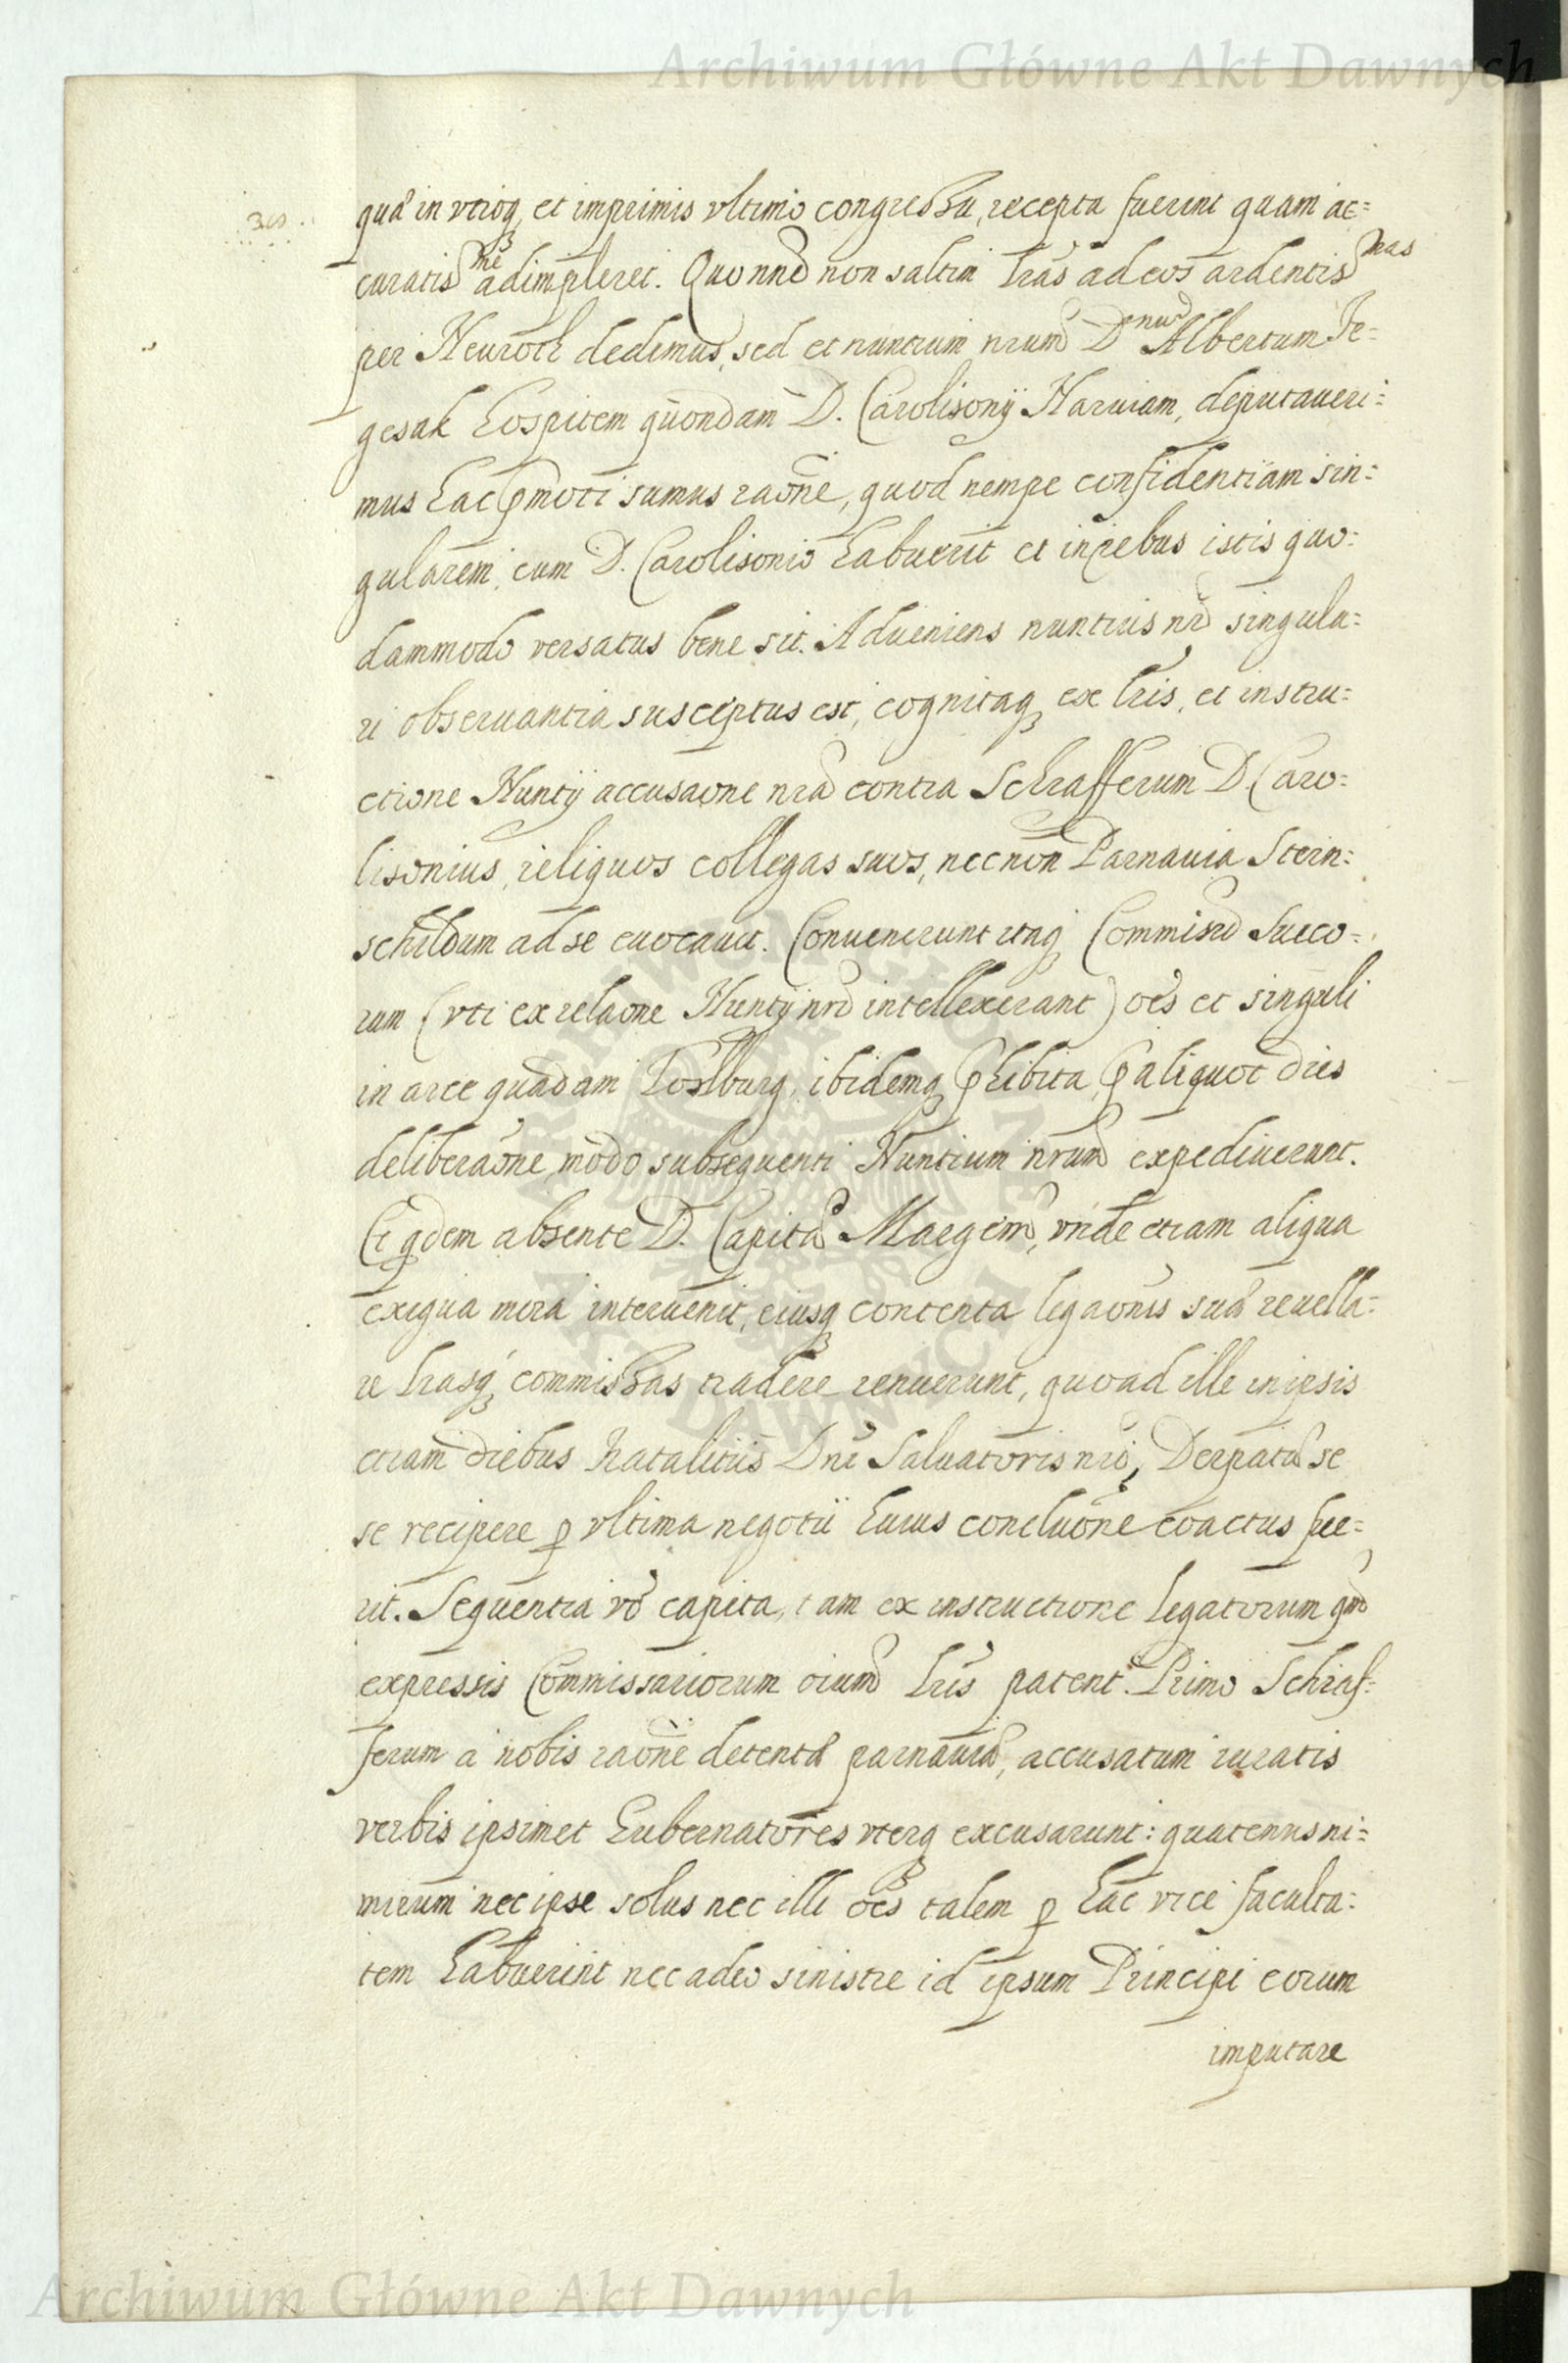 Archiwum Główne Akt Dawnych
quæ in utroq, et imprimis ultimo congressu, recepta fuerint quam ac=
curatisme adimpleret. Quo nne non saltim lras ad eos ardentismas
per Neuroth dedimus, sed et nuntium nrum Dnum Albertum Je=
gesak hospitem quondam D. Carolisonij Narviam, deputaveri=
mus hac pmoti sumus raone, quod nempe confidentiam sin=
gularem, cum D. Carolisonio habuerit et in rebus istis quo=
dammodo versatus bene sit. Adveniens nuntius nr singula=
ri observantia susceptus est, cognitaq ex lris, et instru=
ctione Nuntij accusaone nra contra Schrafferum D. Caro=
lisonius, reliquos collegas suos, necnon Parnavia Stern=
schildum ad se evocavit. Convenerunt itaq Commisrii Sueco=
rum (vti ex relaone Nuntij nri intellexerant) oes et singuli
in arce quadam ibidemq phibita, p aliquot dies
deliberaone, modo subsequenti Nuntium nrum expediverant.
Et qdem absente D. Capita Maegem, unde etiam aliqua
exigua mora intervenit, eiusq contenta legaonis suæ revella=
re lrasq commissas tradere renuerunt, quoad ille in ipsis
etiam diebus Natalitiis Dni Salvatoris nri, Derpatu se
se recipere p vltima negotii huius concluone coactus fue=
rit. Sequentia vo capita, tam ex instructione legatorum qm
expressis Commissariorum oium lris patent. Primo Schraf=
ferum a nobis raone detentæ parnaviæ, accusatum iuratis
verbis ipsimet Gubernatores vterq excusarunt: quatenus ni=
mirum nec ipse solus nec illi oes talem p hac vice faculta=
tem habuerint nec adeo sinistre id ipsum Principi eorum
imputare
Archiwum Główne Akt Dawnych